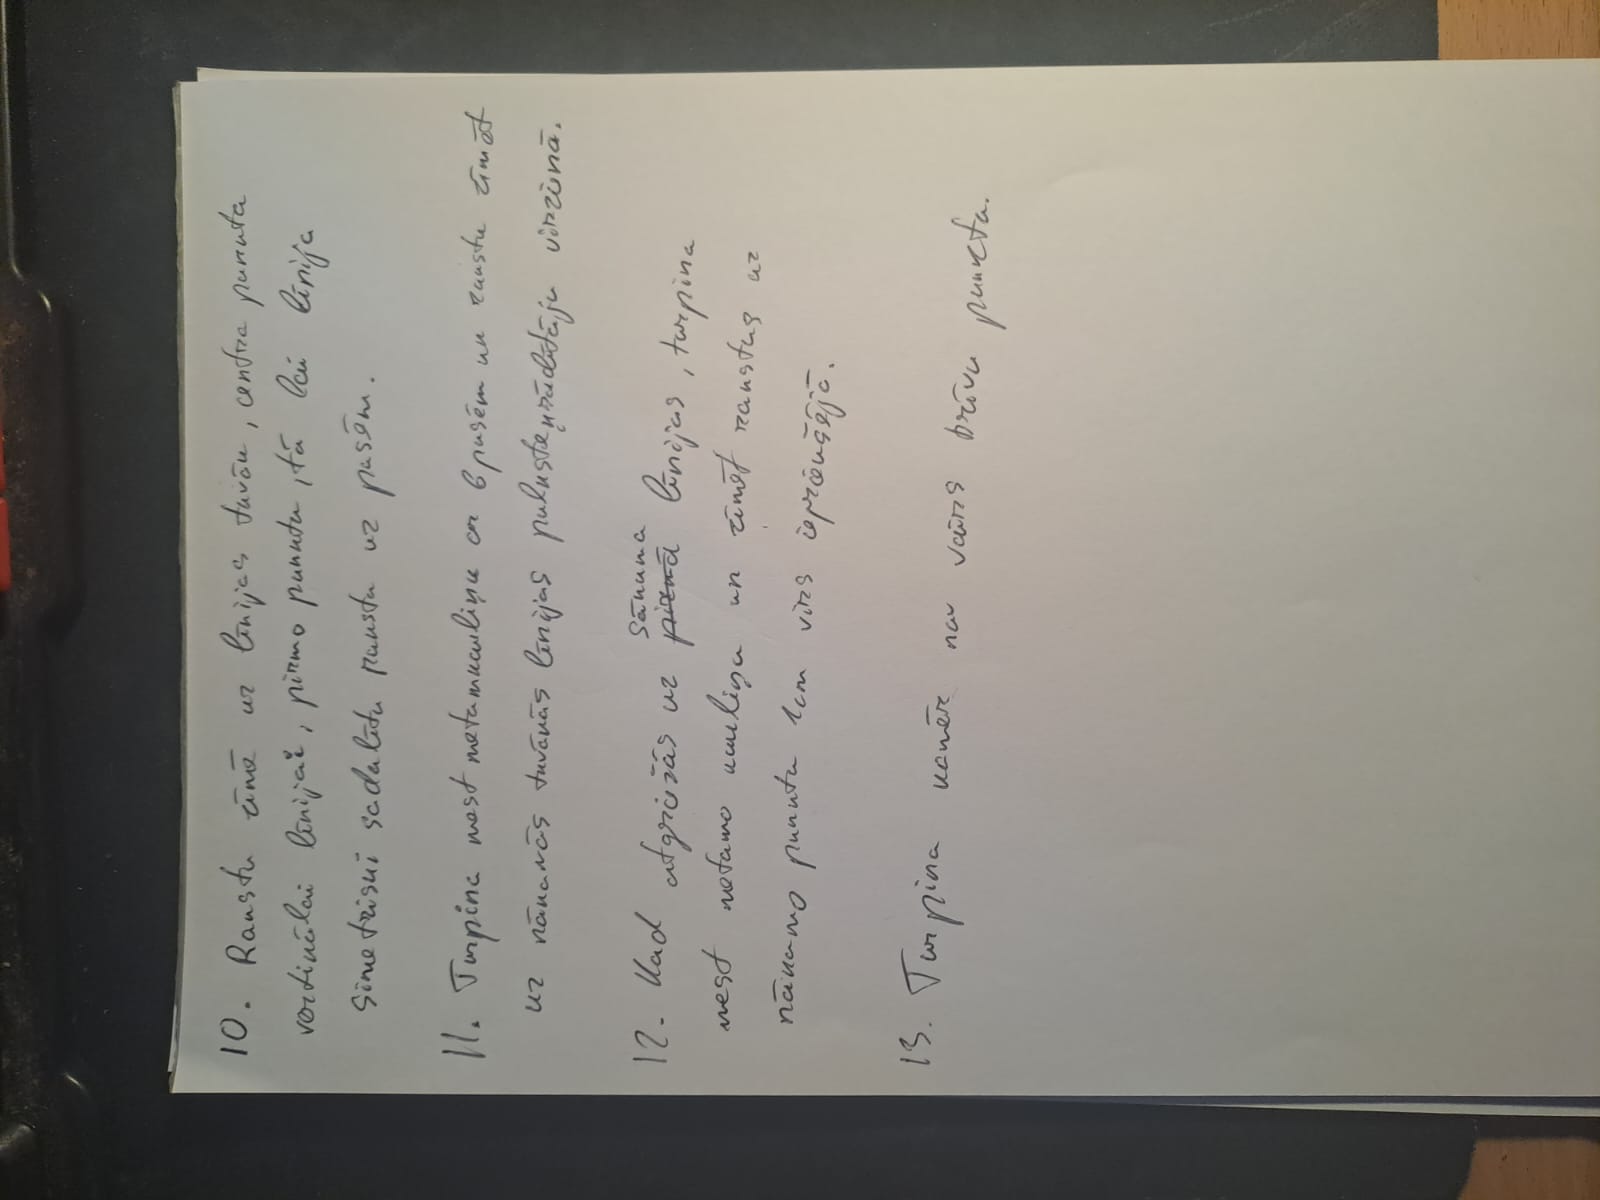 10. Rakstu zīmē uz līnijas tuvāk, centra punkta
vertikālai līnijai, pirmo punktu, tā lai līnija
simetriski sadalītu rakstu uz pusēm.
11. Turpina mest metamkauliņu ar 6 pusēm un rakstu zīmēt
uz nākamās tuvākās līnijas pulksteņrādītāju virzienā.
12. Kad atgriežās uz sākuma līnijas, turpina
mest metamo kauliņu un zīmēt rakstus uz
nākamo punktu kam virs iepriekšējā.
13. Turpina kamēr nav vairs brīvu punktu.